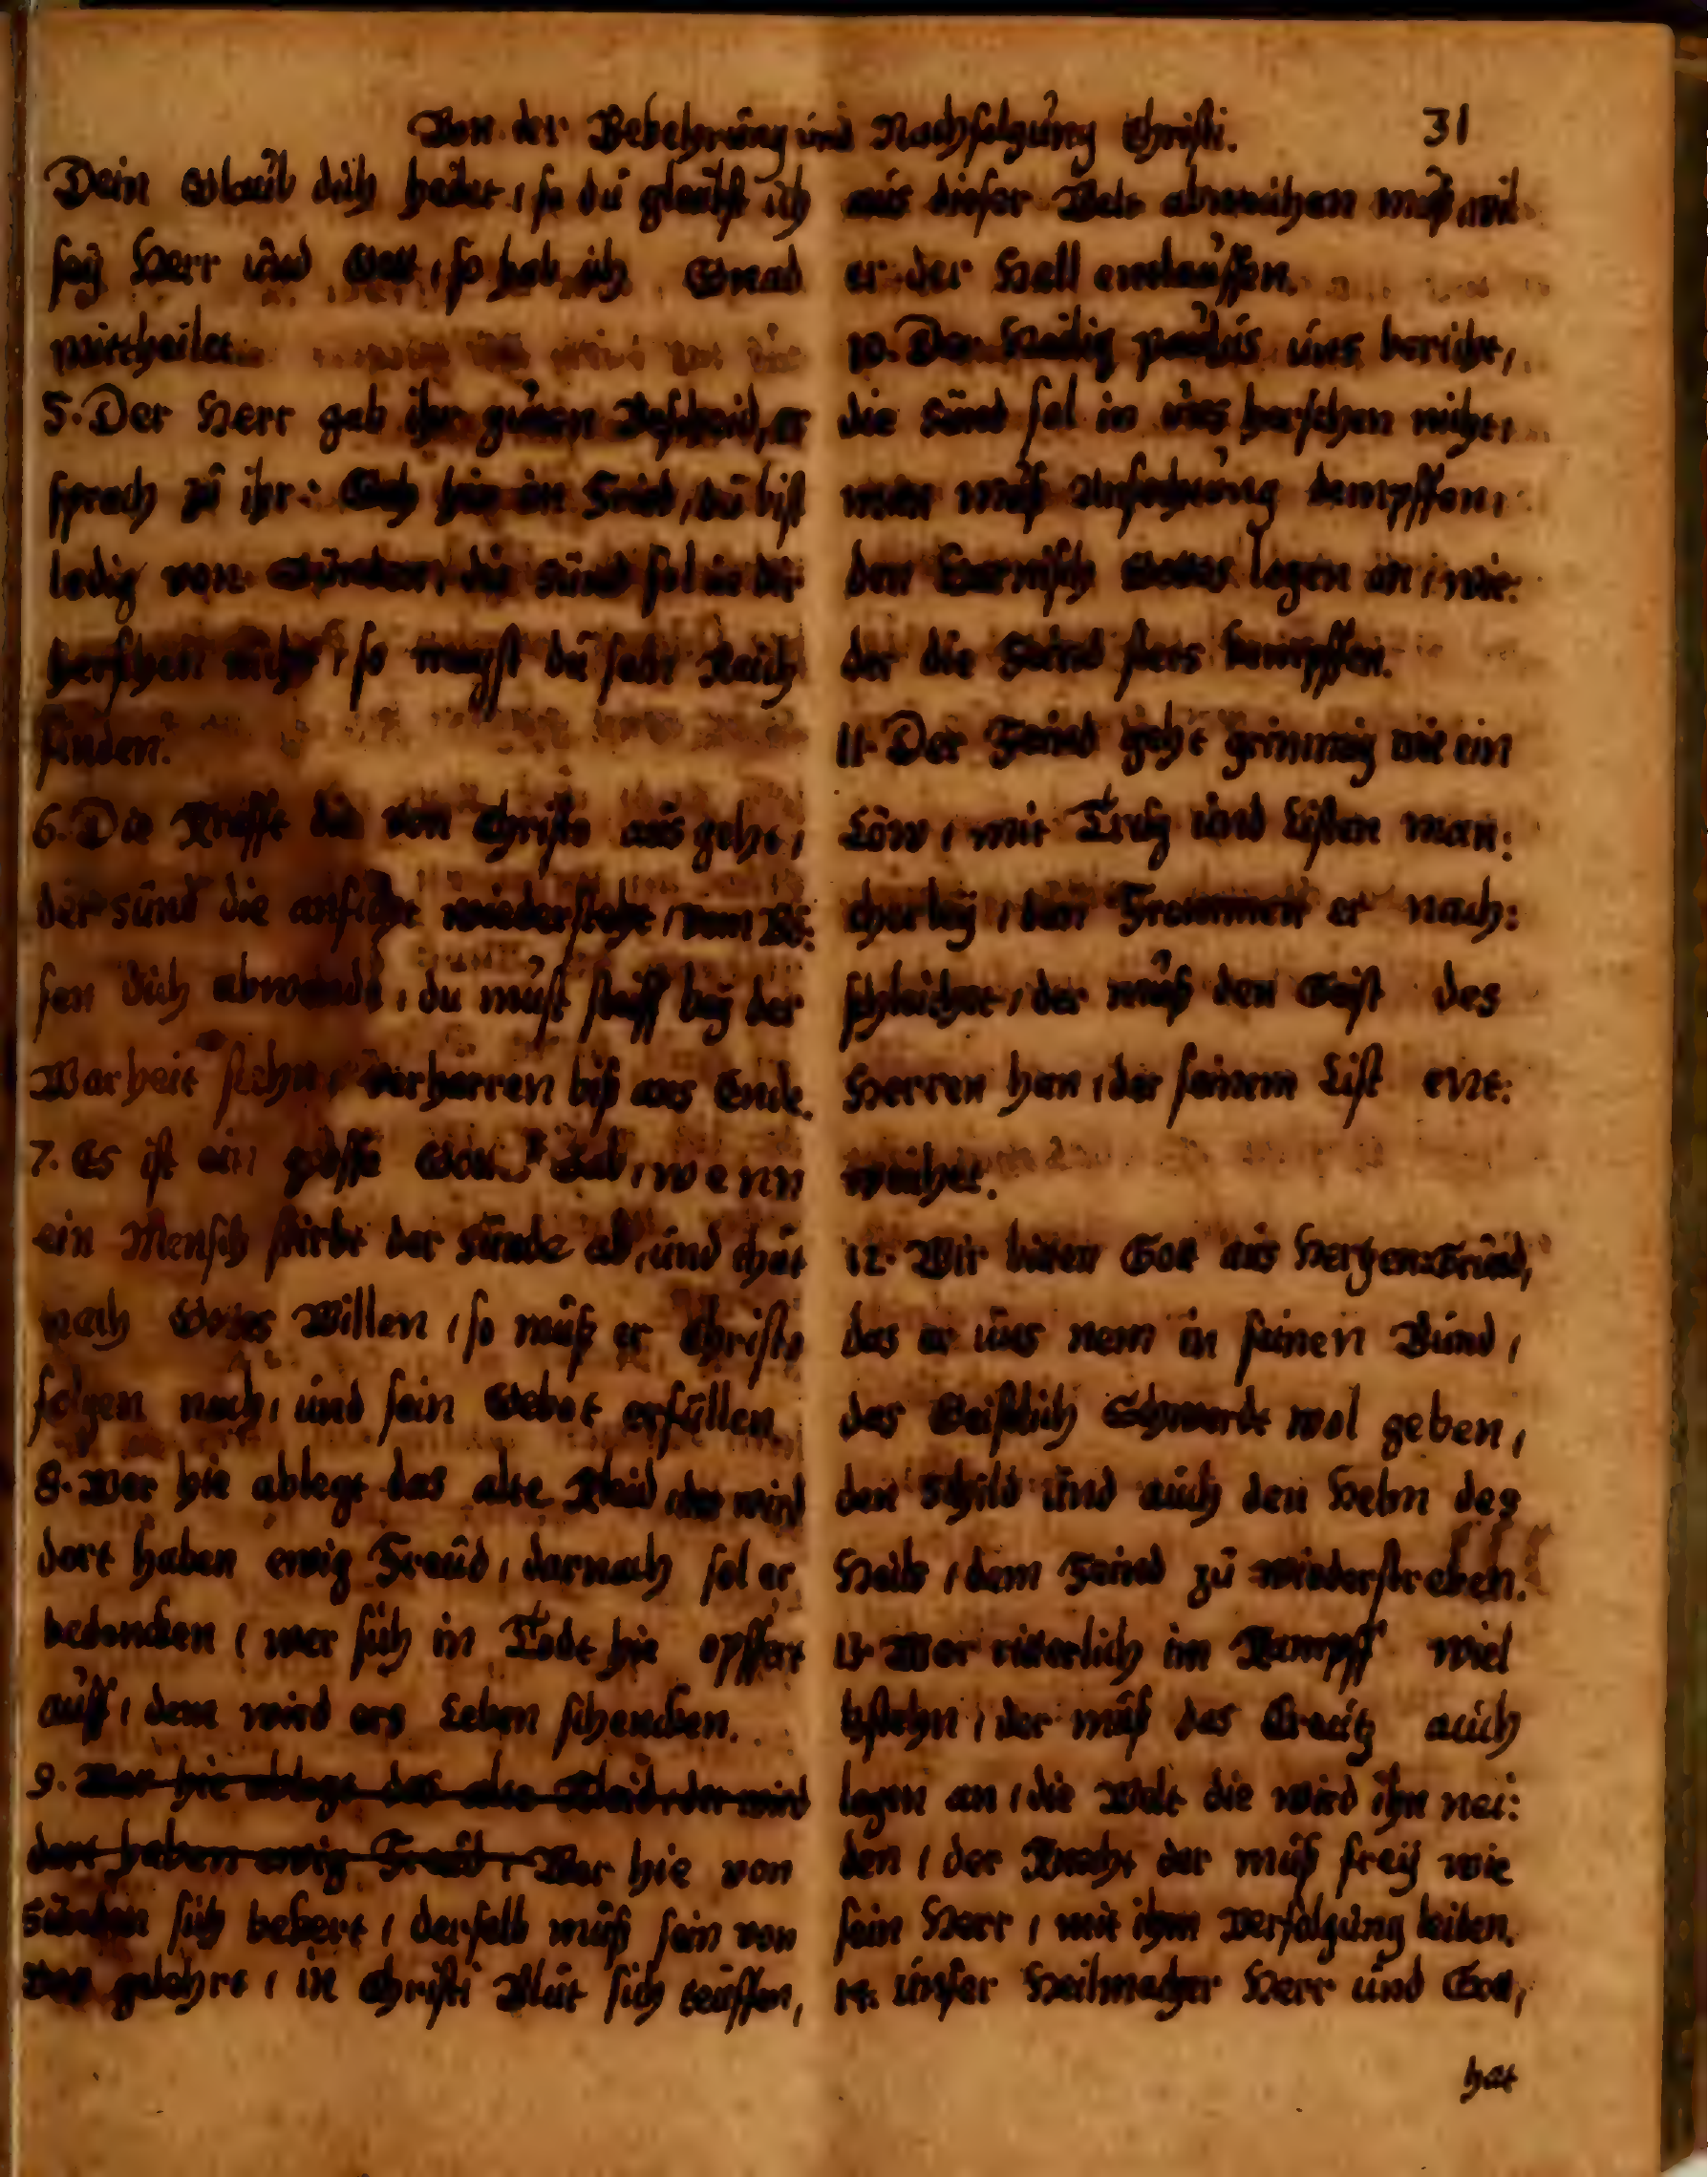 Von der Bekehrung und Nachfolgung Christi. 31
Dein Glaub dich heilet, so du glaubst ich
sey Herr und Gott, so hab ich Gnad
mittheilet.
5. Der Herr gab ihr guten Bescheid, er
sprach zu ihr: Geh hin in Fried, du bist
ledig von Sünden, die Sünd sol in dir
herschen nicht, so magst du sein Reich
finden.
6. Die Krafft die von Christo aus geht,
der Sünd die anficht wiedersteht, vom Bö:
sen dich abwende, du must steiff bey der
Warheit stehn, verharren biß ans Ende.
7. Es ist ein grosse Gottes Gab, wenn
ein Mensch stirbt der Sünde ab, und thut
nach Gottes Willen, so muß er Christo
folgen nach, und sein Gebot erfüllen.
8. Wer hie ablegt das alte Kleid, der wird
dort haben ewig Freud, darnach sol er
bedencken, wer sich in Todt hie opffert
auff, dem wird ers Leben schencken.
9. Wer hie ablegt das alte Kleid, der wird
dort haben ewig Freud, Wer hie von
Sünden sich bekert, derselb muß sein von
Gott gelehrt, in Christi Blut sich teuffen,
aus dieser Welt abweichen muß, wil
er der Hell entlauffen.
10. Der Heilig Paulus uns bericht,
die Sünd sol in uns herschen nicht,
man muß Anfechtung dempffen,
den Harnisch Gottes legen an, wie:
der die Feind stets kempffen.
11. Der Feind geht grimmig wie ein
Löw, mit Trug und Listen man:
cherley, den Frommen er nach:
schleichet, der muß den Geist des
Herren han, der seinem List ent:
weichet.
12. Wir bitten Gott aus Hertzen-Grund,
das er uns nem in seinen Bund,
das Geistlich Schwerdt wol geben,
den Schild und auch den Helm des
Heils, dem Feind zu wiederstreben.
13. Wer ritterlich im Kampff wiel
bstehn, der muß das Creutz auch
legen an, die Welt die wird ihn nei:
den, der Knecht der muß frey wie
sein Herr, mit ihm Verfolgung leiden.
14. Unser Heilmacher Herr und Gott,
hat